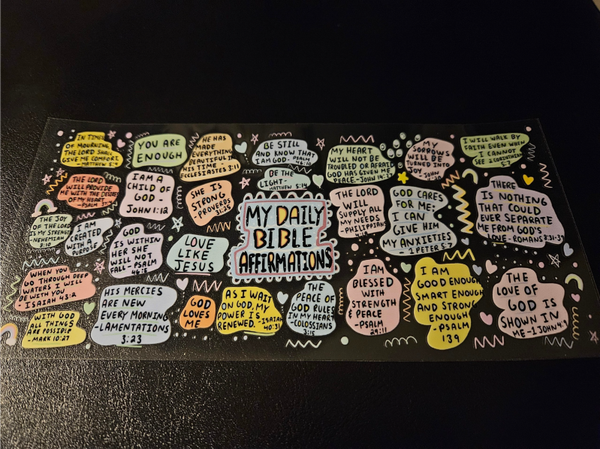 IN TIMES
OF MOURNING
THE LORD SHALL
GIVE ME COMFORT.
-MATTHEW 5:4
YOU ARE
ENOUGH
HE HAS
MADE
EVERYTHING
BEAUTIFUL IN
HIS TIME -
ECCLESIASTES 3:11
BE STILL
AND KNOW THAT
I AM GOD - PSALM
46:10
MY HEART
WILL NOT BE
TROUBLED OR AFRAID.
GOD HAS GIVEN ME
PEACE -JOHN 14:27
MY
SORROWS
WILL BE
TURNED INTO
JOY JOHN
I WILL WALK BY
FAITH EVEN WHEN
I CANNOT
SEE
THE LORD
WILL PROVIDE
ME WITH THE
OF MY HEART
-PSALM
I AM A
CHILD OF
GOD -
JOHN 1:12
SHE IS
STRONG
PROVERBS
31:25
BE THE
LIGHT -
MATTHEW 5:14
THE LORD
WILL
SUPPLY ALL
MY NEEDS
-PHILIPPIANS
GOD CARES
FOR ME.
I CAN
GIVE HIM
MY ANXIETIES
1 PETER 5:7
THERE
IS NOTHING
THAT COULD
EVER SEPARATE
ME FROM GOD'S
LOVE -ROMANS
THE JOY
OF THE LORD
IS MY STRENGTH
-NEHEMIAH
8:10
I AM
CREATED
WITH A
PURPOSE
GOD
IS WITHIN
HER SHE
WILL NOT
FALL - PSALM
46:5
LOVE
LIKE
JESUS
MY DAILY
BIBLE
AFFIRMATIONS
WHEN YOU
GO THROUGH DEEP
I WILL
BE WITH YOU
-ISAIAH 43:2
HIS MERCIES
ARE NEW
EVERY MORNING
-LAMENTATIONS
3:23
GOD
LOVES
ME
AS I WAIT
ON GOD, MY
POWER IS
RENEWED. -ISAIAH
40:31
THE
PEACE OF
GOD RULES
IN MY HEART
-COLOSSIANS
3:15
I AM
BLESSED
WITH
STRENGTH
& PEACE
-PSALM
29:11
I AM
GOOD ENOUGH
SMART ENOUGH
AND STRONG
ENOUGH
-PSALM
139
THE
LOVE OF
GOD IS
SHOWN IN
ME -1 JOHN 4:9
WITH GOD
ALL THINGS
ARE POSSIBLE
-MARK 10:27